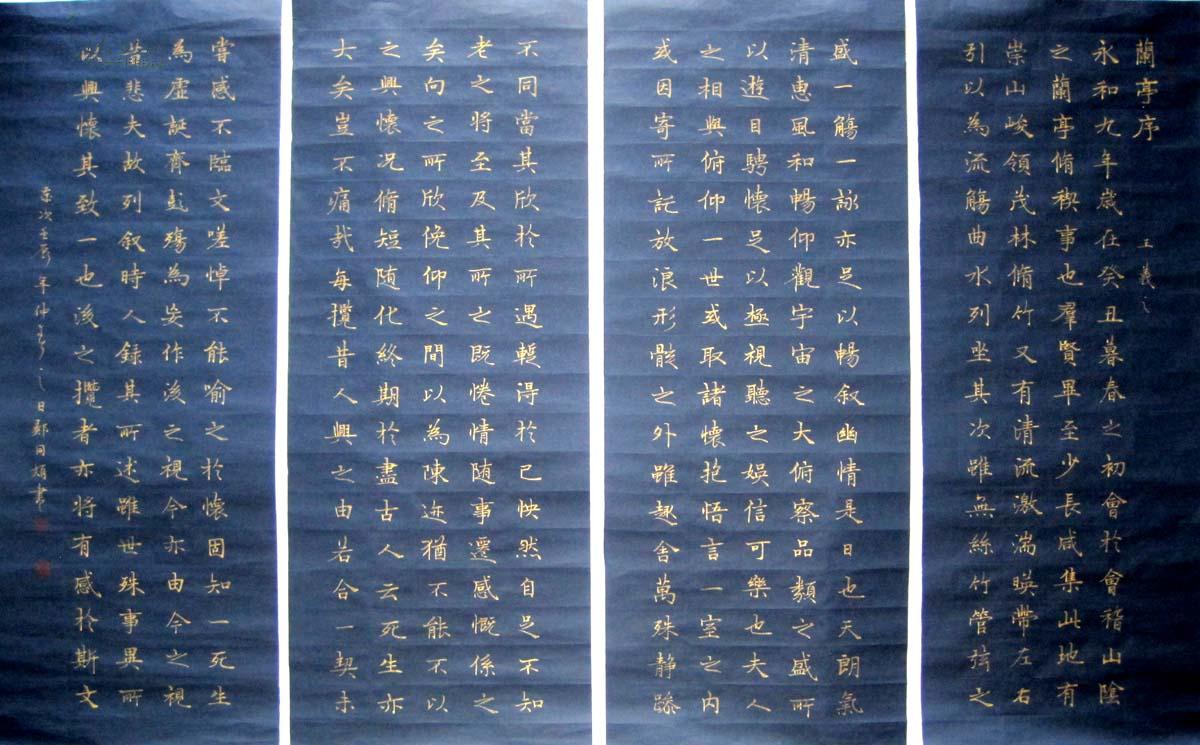 蘭亭序
王羲之
永和九年歲在癸丑暮春之初會於會稽山陰
之蘭亭脩稧事也羣賢畢至少長咸集此地有
崇山峻領茂林脩竹又有清流激湍暎帶左右
引以為流觴曲水列坐其次雖無絲竹管弦之
盛一觴一詠亦足以暢叙幽情是日也天朗氣
清惠風和暢仰觀宇宙之大俯察品類之盛所
以遊目騁懷足以極視聽之娛信可樂也夫人
之相與俯仰一世或取諸懷抱悟言一室之內
或因寄所託放浪形骸之外雖趣舍萬殊静躁
不同當其欣於所遇蹔得於己怏然自足不知
老之將至及其所之既惓情随事遷感慨係之
矣向之所欣俛仰之間以為陳迹猶不能不以
之興懷况脩短随化終期於盡古人云死生亦
大矣豈不痛哉每攬昔人興之由若合一契未
嘗感不臨文嗟悼不能喻之於懷固知一死生
為虛誕齊彭殤為妄作後之視今亦由今之視
昔悲夫故列叙時人錄其所述雖世殊事異所
以興懷其致一也後之攬者亦將有感於斯文
次壬辰年仲之日鄭同書